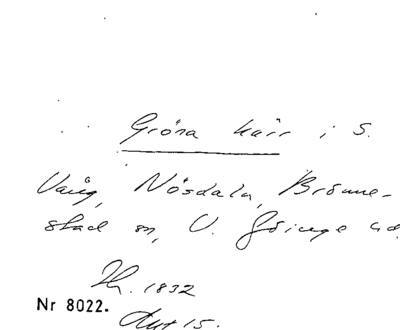 Gröna kärr i S.
Vång, Nösdala, Brönne-
stad sn, V. Göinge hd.
Th. 1832
Nr 8022.
Akt 15.